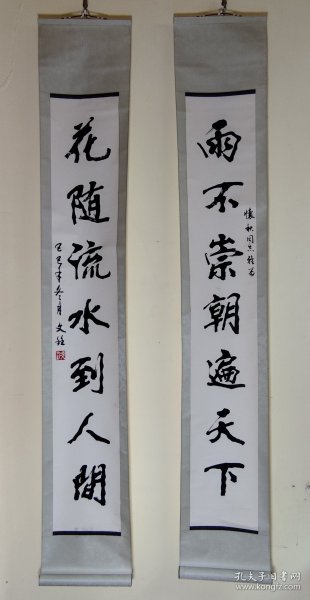 雨不崇朝遍天下
懷秋同志雅屬
花随流水到人間
己巳年冬月 文銓
孔夫子旧书网
www.kongfz.com